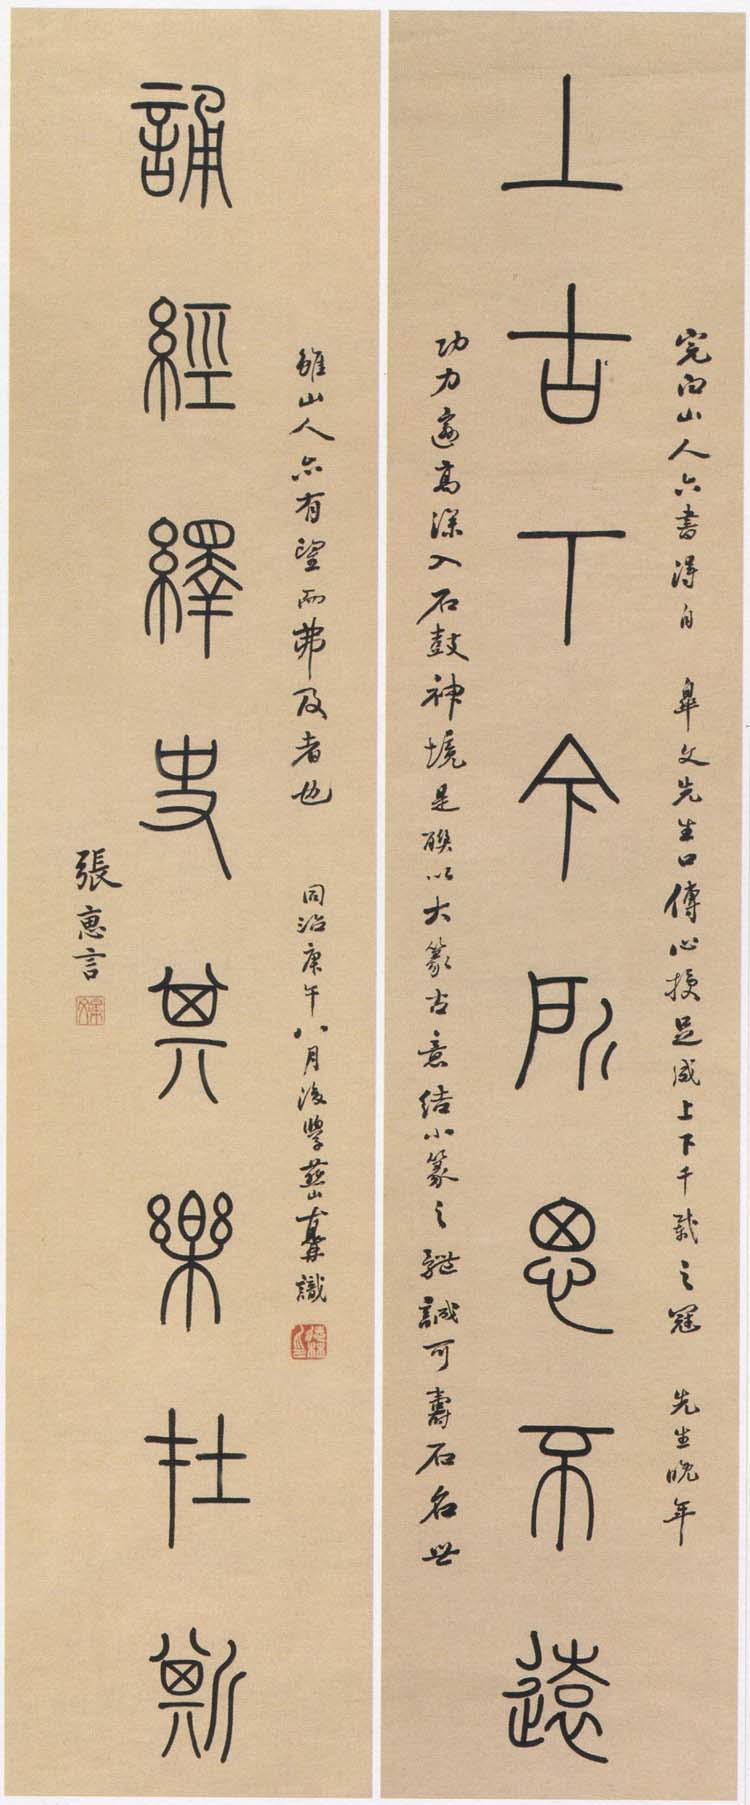 完白山人六書得自 皋文先生口傳心授足成上下千載之冠 先生晚年
上古下今所思不遠
功力逾高深入石鼓神境是聯以大篆古意結小篆之體誠可壽石名世
雖山人亦有望而弗及者也 同治庚午八月後學識
誦經繹史其樂在斯
張惠言